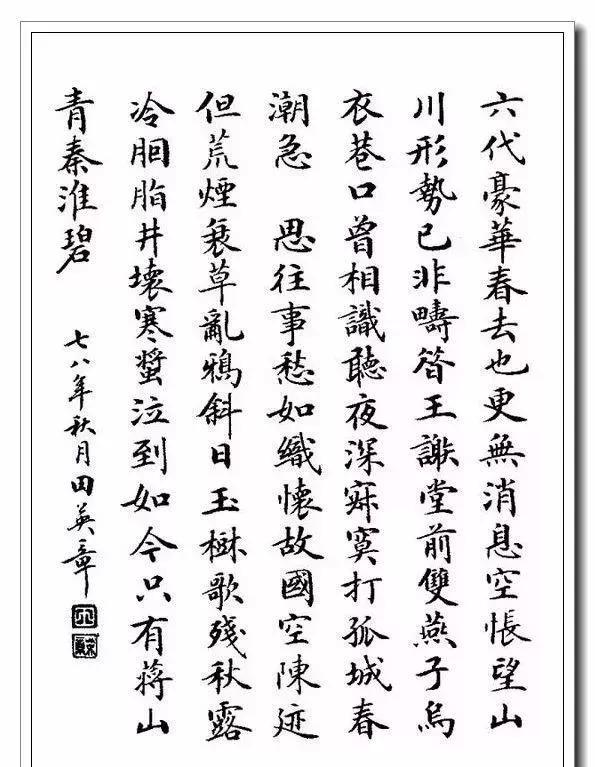 六代豪華春去也更無消息空悵望山
川形勢已非疇昔王謝堂前雙燕子烏
衣巷口曾相識聽夜深寂寞打孤城春
潮急 思往事愁如織懷故國空陳迹
但荒煙衰草亂鴉斜日玉樹歌殘秋露
冷胭脂井壞寒螿泣到如今只有蔣山
青秦淮碧
七八年秋月田英章